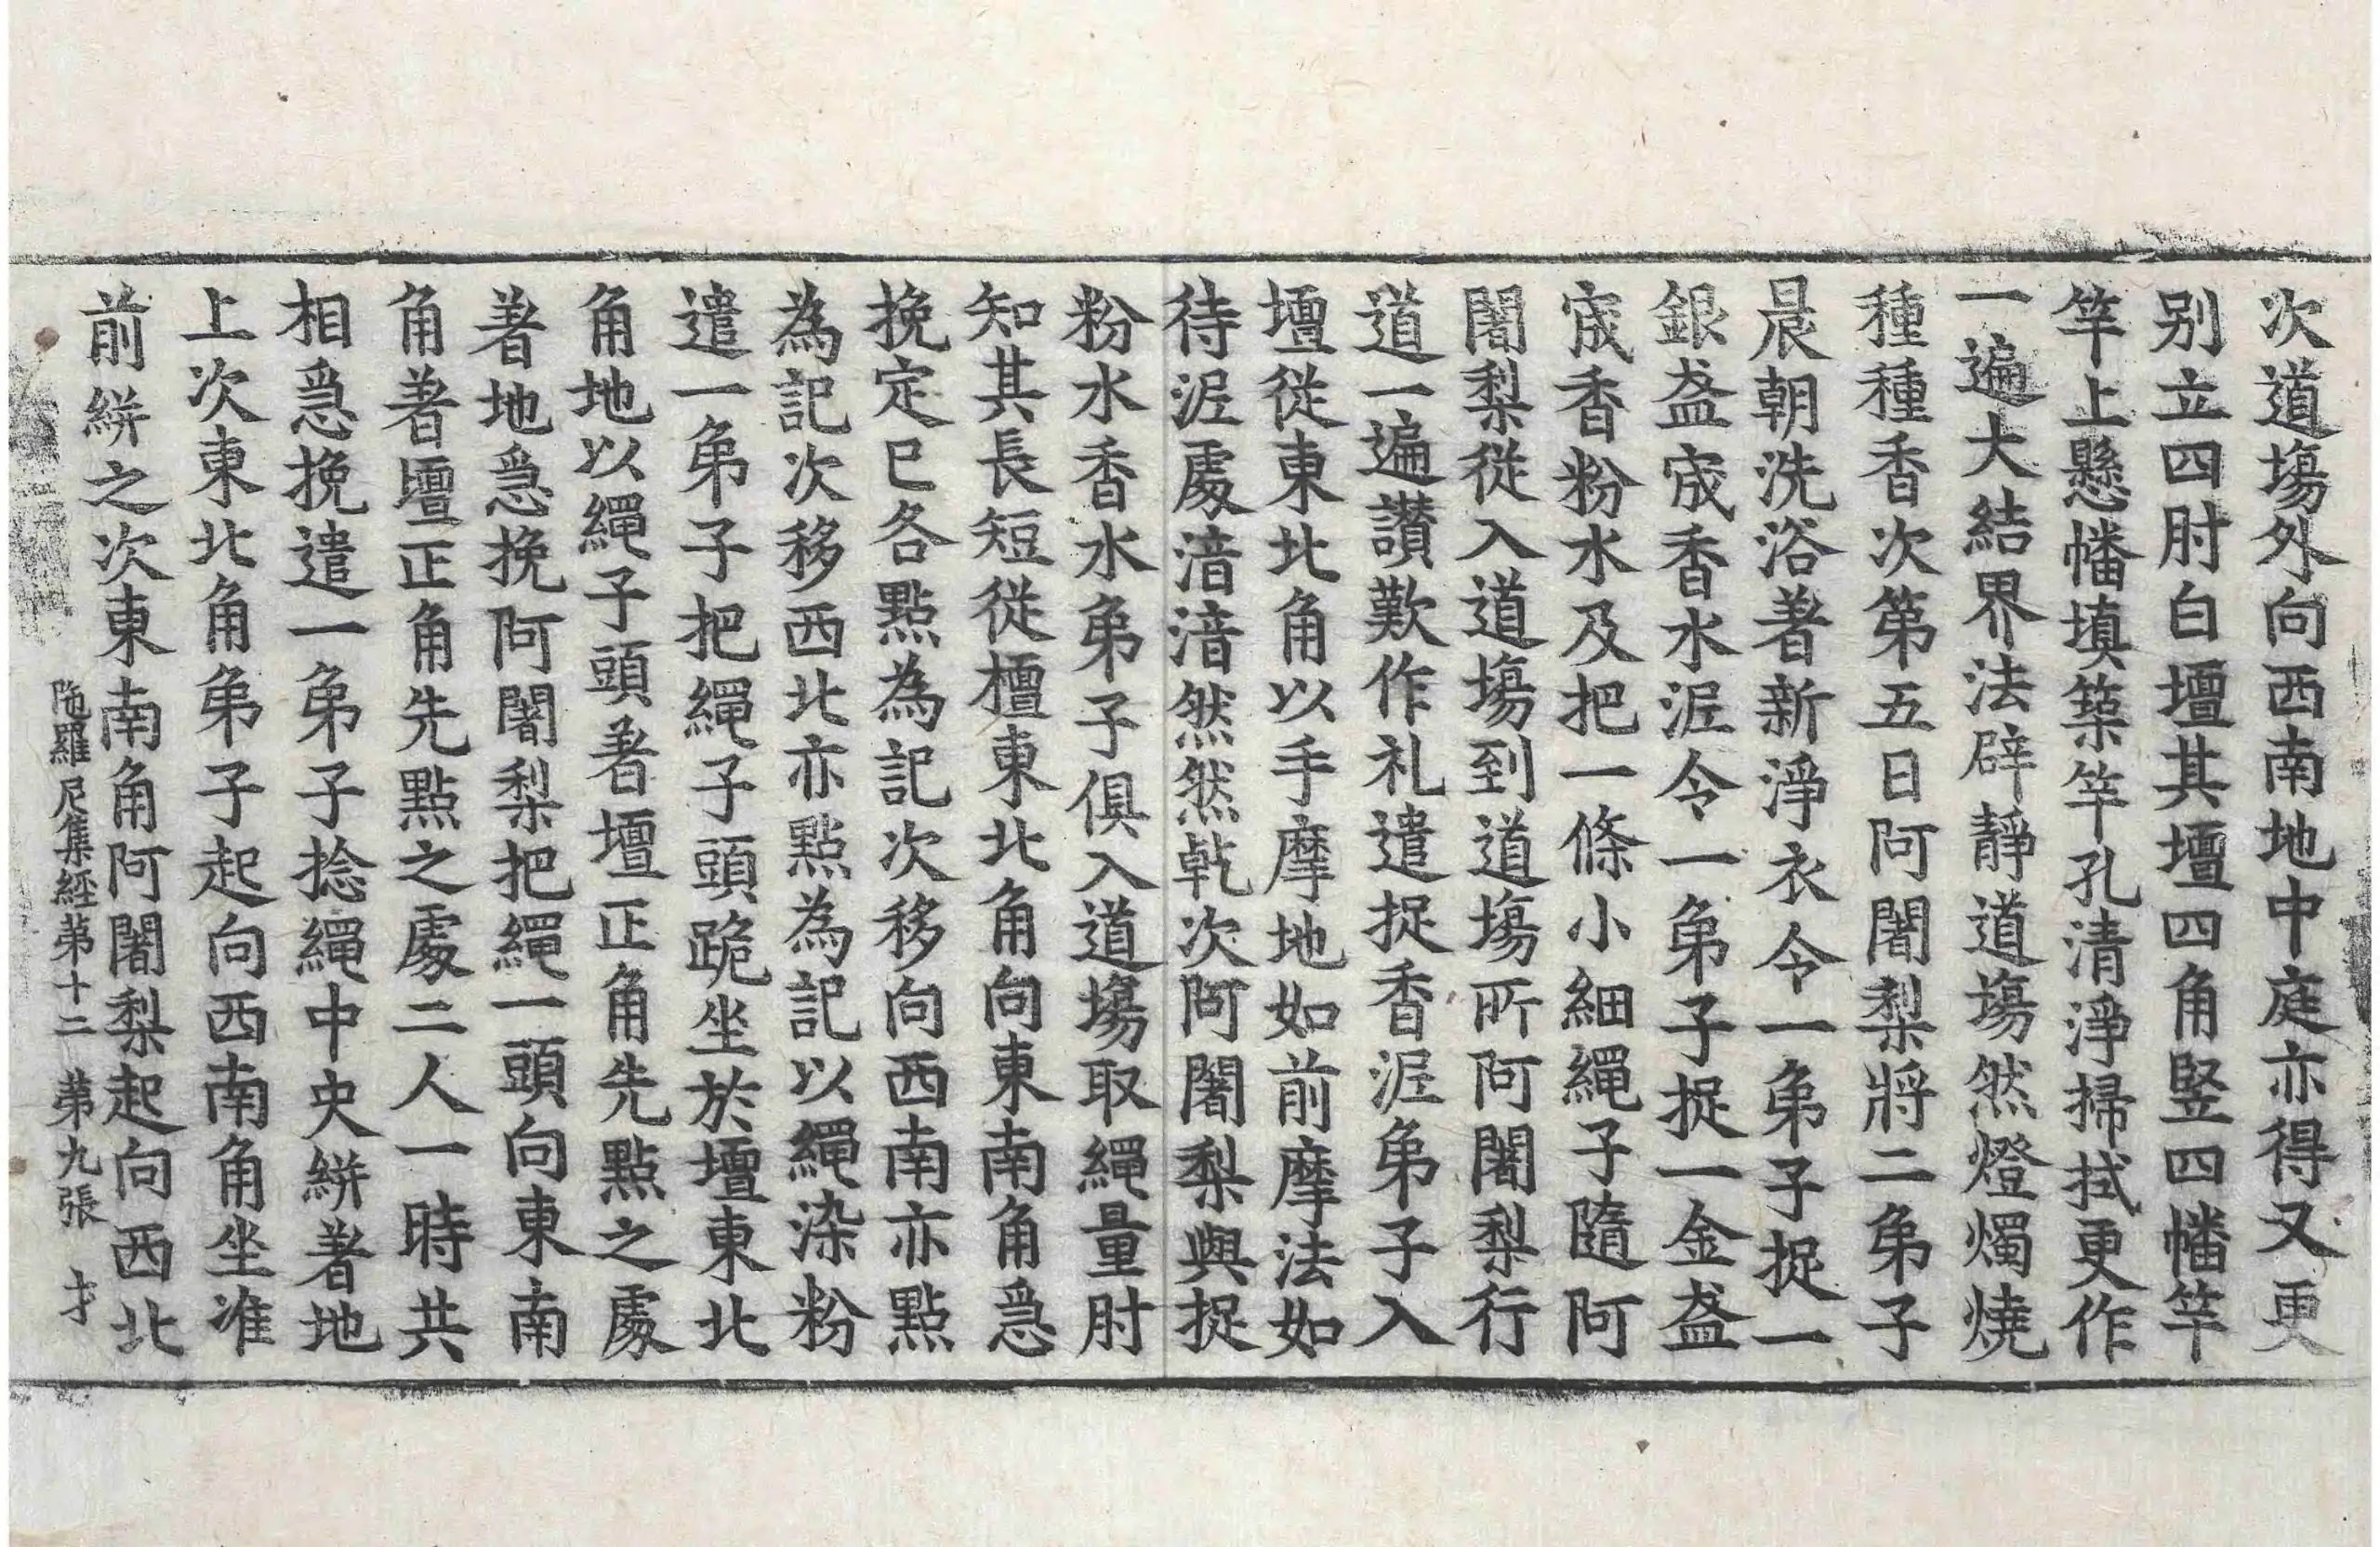 次道塲外向西南地中庭亦得又更
别立四肘白壇其壇四角竪四幡竿
竿上懸幡填築竿孔清淨掃拭更作
一遍大結界法辟靜道塲然燈燭燒
種種香次第五日阿闍梨將二弟子
晨朝洗浴著新淨衣令一弟子捉一
銀盋宬香水泥令一弟子捉一金盋
宬香粉水及把一條小細繩子隨阿
闍梨從入道塲到道塲所阿闍梨行
道一遍讃歎作礼遣捉香泥弟子入
壇從東北角以手摩地如前摩法如
待泥處湆湆然然乹次阿闍梨與捉
粉水香水弟子俱入道塲取繩量肘
知其長短從檀東北角向東南角急
挽定已各點為記次移向西南亦點
為記次移西北亦點為記以繩染粉
遣一弟子把繩子頭跪坐於壇東北
角地以繩子頭著壇正角先點之處
著地急挽阿闍梨把繩一頭向東南
角著壇正角先點之處二人一時共
相急挽遣一弟子捻繩中央絣著地
上次東北角弟子起向西南角坐准
前絣之次東南角阿闍梨起向西北
陁羅尼集經第十二 第九張 才